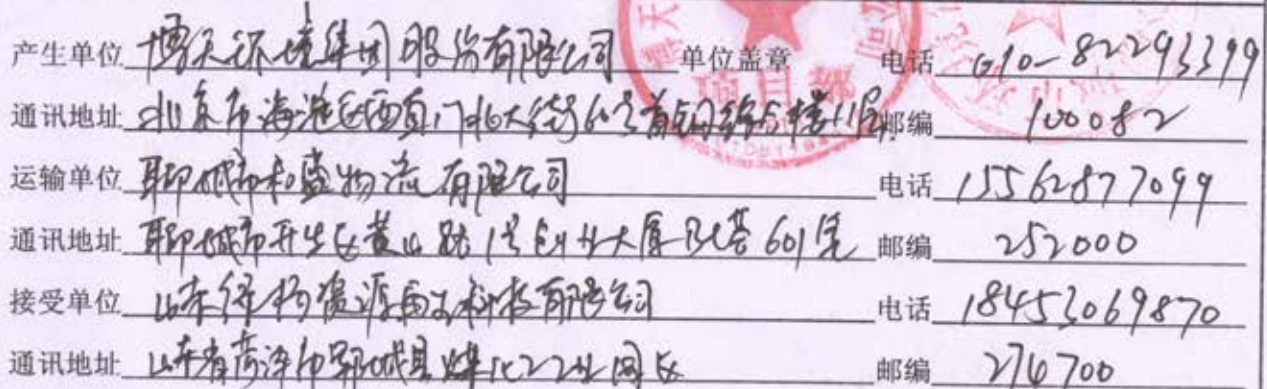 产生单位 博天环境集团股份有限公司 单位盖章 电话 010-82293399
通讯地址 北京市海淀区西直门北大街60号首钢综合楼11层 邮编 100082
运输单位 聊城市和盛物流有限公司 电话 15562877099
通讯地址 聊城市开发区黄山路1号创业大厦B座601室 邮编 252000
接受单位 山东绿杨资源再生科技有限公司 电话 18453069870
通讯地址 山东省菏泽市郓城县煤化工工业园区 邮编 274700
项目部